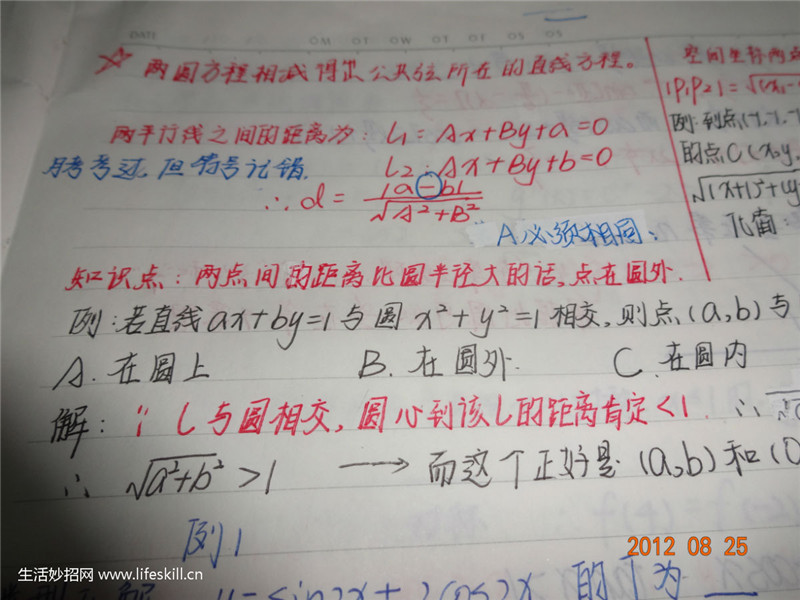 DATE
☆ 两圆方程相减得出公共弦所在的直线方程。
两平行线之间的距离为: L1 = Ax+By+a=0
月考考过,但符号记错. L2: Ax+By+b=0
∴ d = |a-b| / √A²+B²
A必须相同.
知识点:两点间的距离比圆半径大的话,点在圆外.
例:若直线ax+by=1与圆x²+y²=1相交,则点(a,b)与
A. 在圆上 B. 在圆外. C. 在圆内
解: ∵ L与圆相交,圆心到该L的距离肯定<1. ∴
∴ √a²+b² >1 → 而这个正好是(a,b)和(0
例1
y=sin2x+2cos2x 的T为
空间坐标两点
|P1P2|=√(x1-
例:到点(-1,-1,-
的点C(x,y,
√(x+1)²+(y
2012 08 25
生活妙招网 www.lifeskill.cn